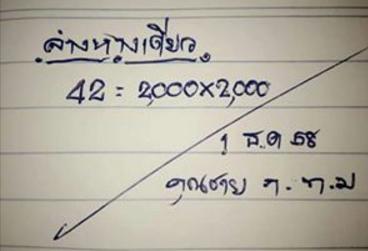 ล่างทางเดียว
42 = 2,000x2,000
1 ธ.ค 58
คุณชาย ก. ท.ม